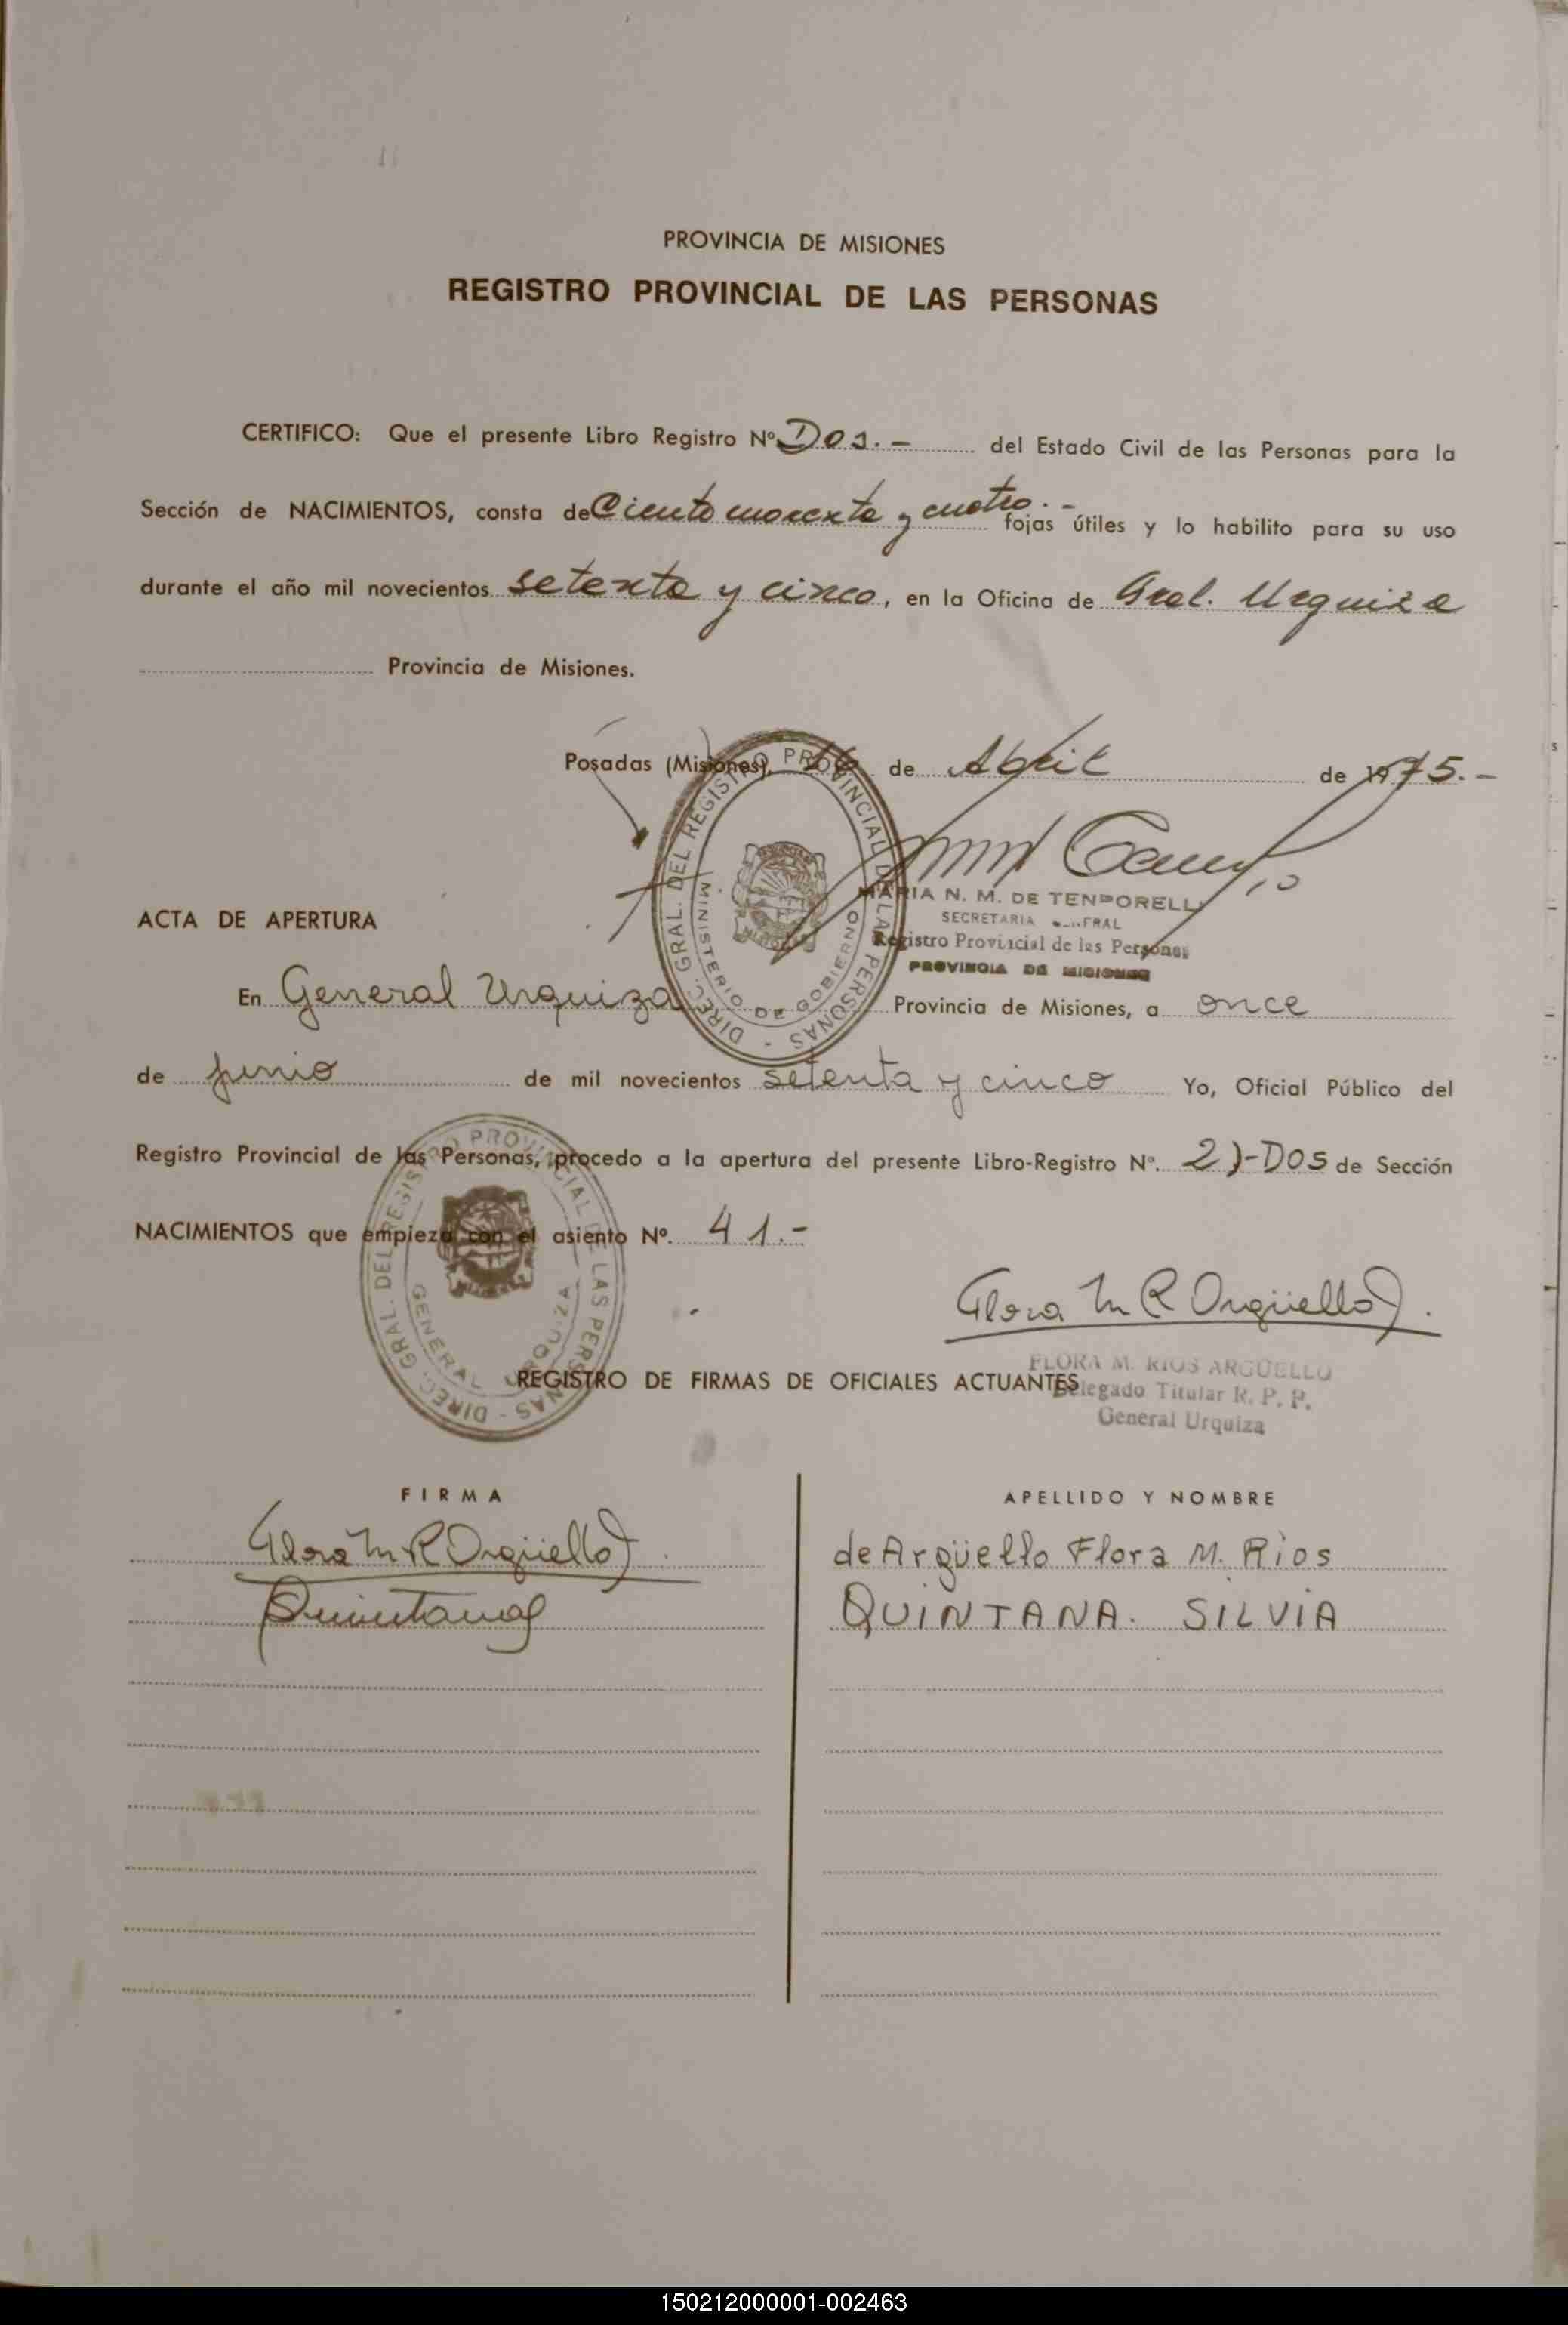 PROVINCIA DE MISIONES
REGISTRO PROVINCIAL DE LAS PERSONAS
CERTIFICO: Que el presente Libro Registro Nº Dos.- del Estado Civil de las Personas para la
Sección de NACIMIENTOS, consta de Ciento y cuatro.- fojas útiles y lo habilito para su uso
durante el año mil novecientos setenta y cinco, en la Oficina de Gral. Urquiza
Provincia de Misiones.
Posadas (Misiones), de Abril de 1975.-
DIREC. GRAL. DEL REGISTRO PROVINCIAL DE LAS PERSONAS -
MINISTERIO DE GOBIERNO
MARIA N. M. DE
SECRETARIA
Registro Provincial de las Personas
PROVINCIA DE MISIONES
ACTA DE APERTURA
En General Urquiza Provincia de Misiones, a once
de junio de mil novecientos setenta y cinco Yo, Oficial Público del
Registro Provincial de las Personas, procedo a la apertura del presente Libro-Registro Nº. 2)-DOS de Sección
NACIMIENTOS que empieza con el asiento Nº. 41.-
DIREC. GRAL. DEL REGISTRO PROVINCIAL DE LAS PERSONAS -
GENERAL URQUIZA
Flora M R Argüello
FLORA M. RIOS ARGÜELLO
Delegado Titular R. P. P.
General Urquiza
REGISTRO DE FIRMAS DE OFICIALES ACTUANTES
FIRMA APELLIDO Y NOMBRE
Flora M R Argüello de Argüello Flora M. Rios
Quintana QUINTANA. SILVIA
150212000001-002463